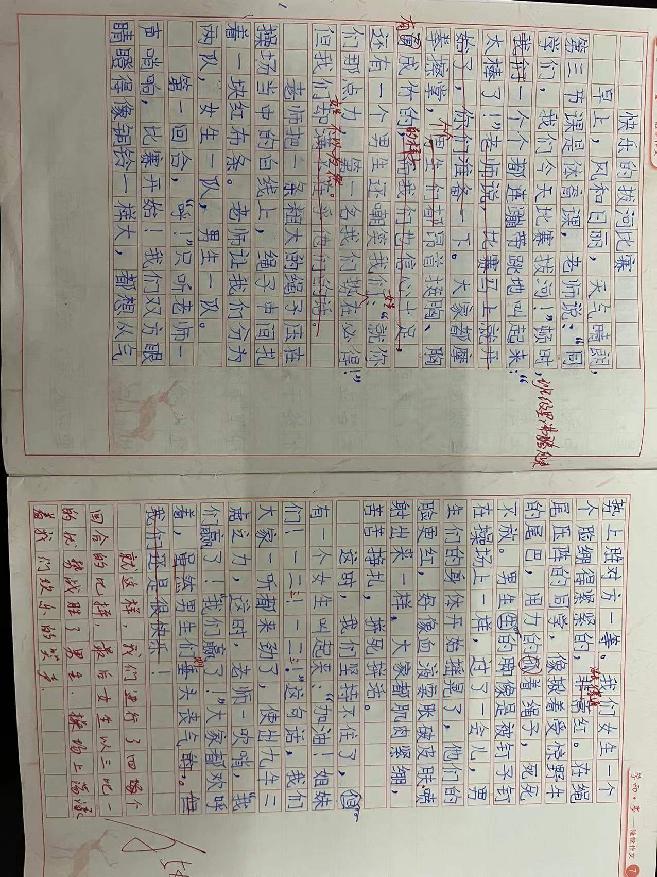 快乐的拔河比赛
早上,风和日丽,天气晴朗,
第三节课是体育课,老师说:“同
学们,我们今天比赛拔河!”顿时,
班级里沸腾起来
我们一个个都连蹦带跳地叫起来:“
太棒了!”老师说,比赛马上就开
始了,你们准备一下。大家都摩
拳擦掌,男生们都昂首挺胸、胸
有成竹的样子,我们也信心十足,
还有一个男生还嘲笑我们:“就你
们那点力,第一名我们势在必得!”
但我们却他们的话。
老师把一条粗大的绳子压在
操场当中的白线上,绳子中间扎
着一块红布条。老师让我们分为
两队,女生一队,男生一队。
第一回合,“!”只听老师一
声哨响,比赛开始!我们双方眼
睛瞪得像铜铃一样大,都想从气
势上胜对方一筹。我们女生一个
个脸绷得紧紧的,红。在绳
尾压阵的同学,像揪着受惊野牛
的尾巴,用力的着绳子,死死
不放。男生的脚像是被钉子钉
在操场上一样,过了一会儿,男
生们的身体开始摇晃了,他们的
脸更红,好像血液要胀破皮肤喷
射出来一样,大家都肌肉紧绷,
苦苦挣扎,拼死拼活。
这时,我们坚持不住了,
有一个女生叫起来:“加油!姐妹
们!一二三!一二三!”这句话,我们
大家一听都来劲了,使出九牛二
虎之力,这时,老师一吹哨,“我
们赢了!我们赢了!”大家都欢呼
着,虽然男生们垂头丧气的。但
我们还是很快乐!
就这样,我们进行了四个
回合的比拼,最后女生以三比一
的优势战胜了男生。操场上荡漾
着我们欢乐的笑声
学而·考